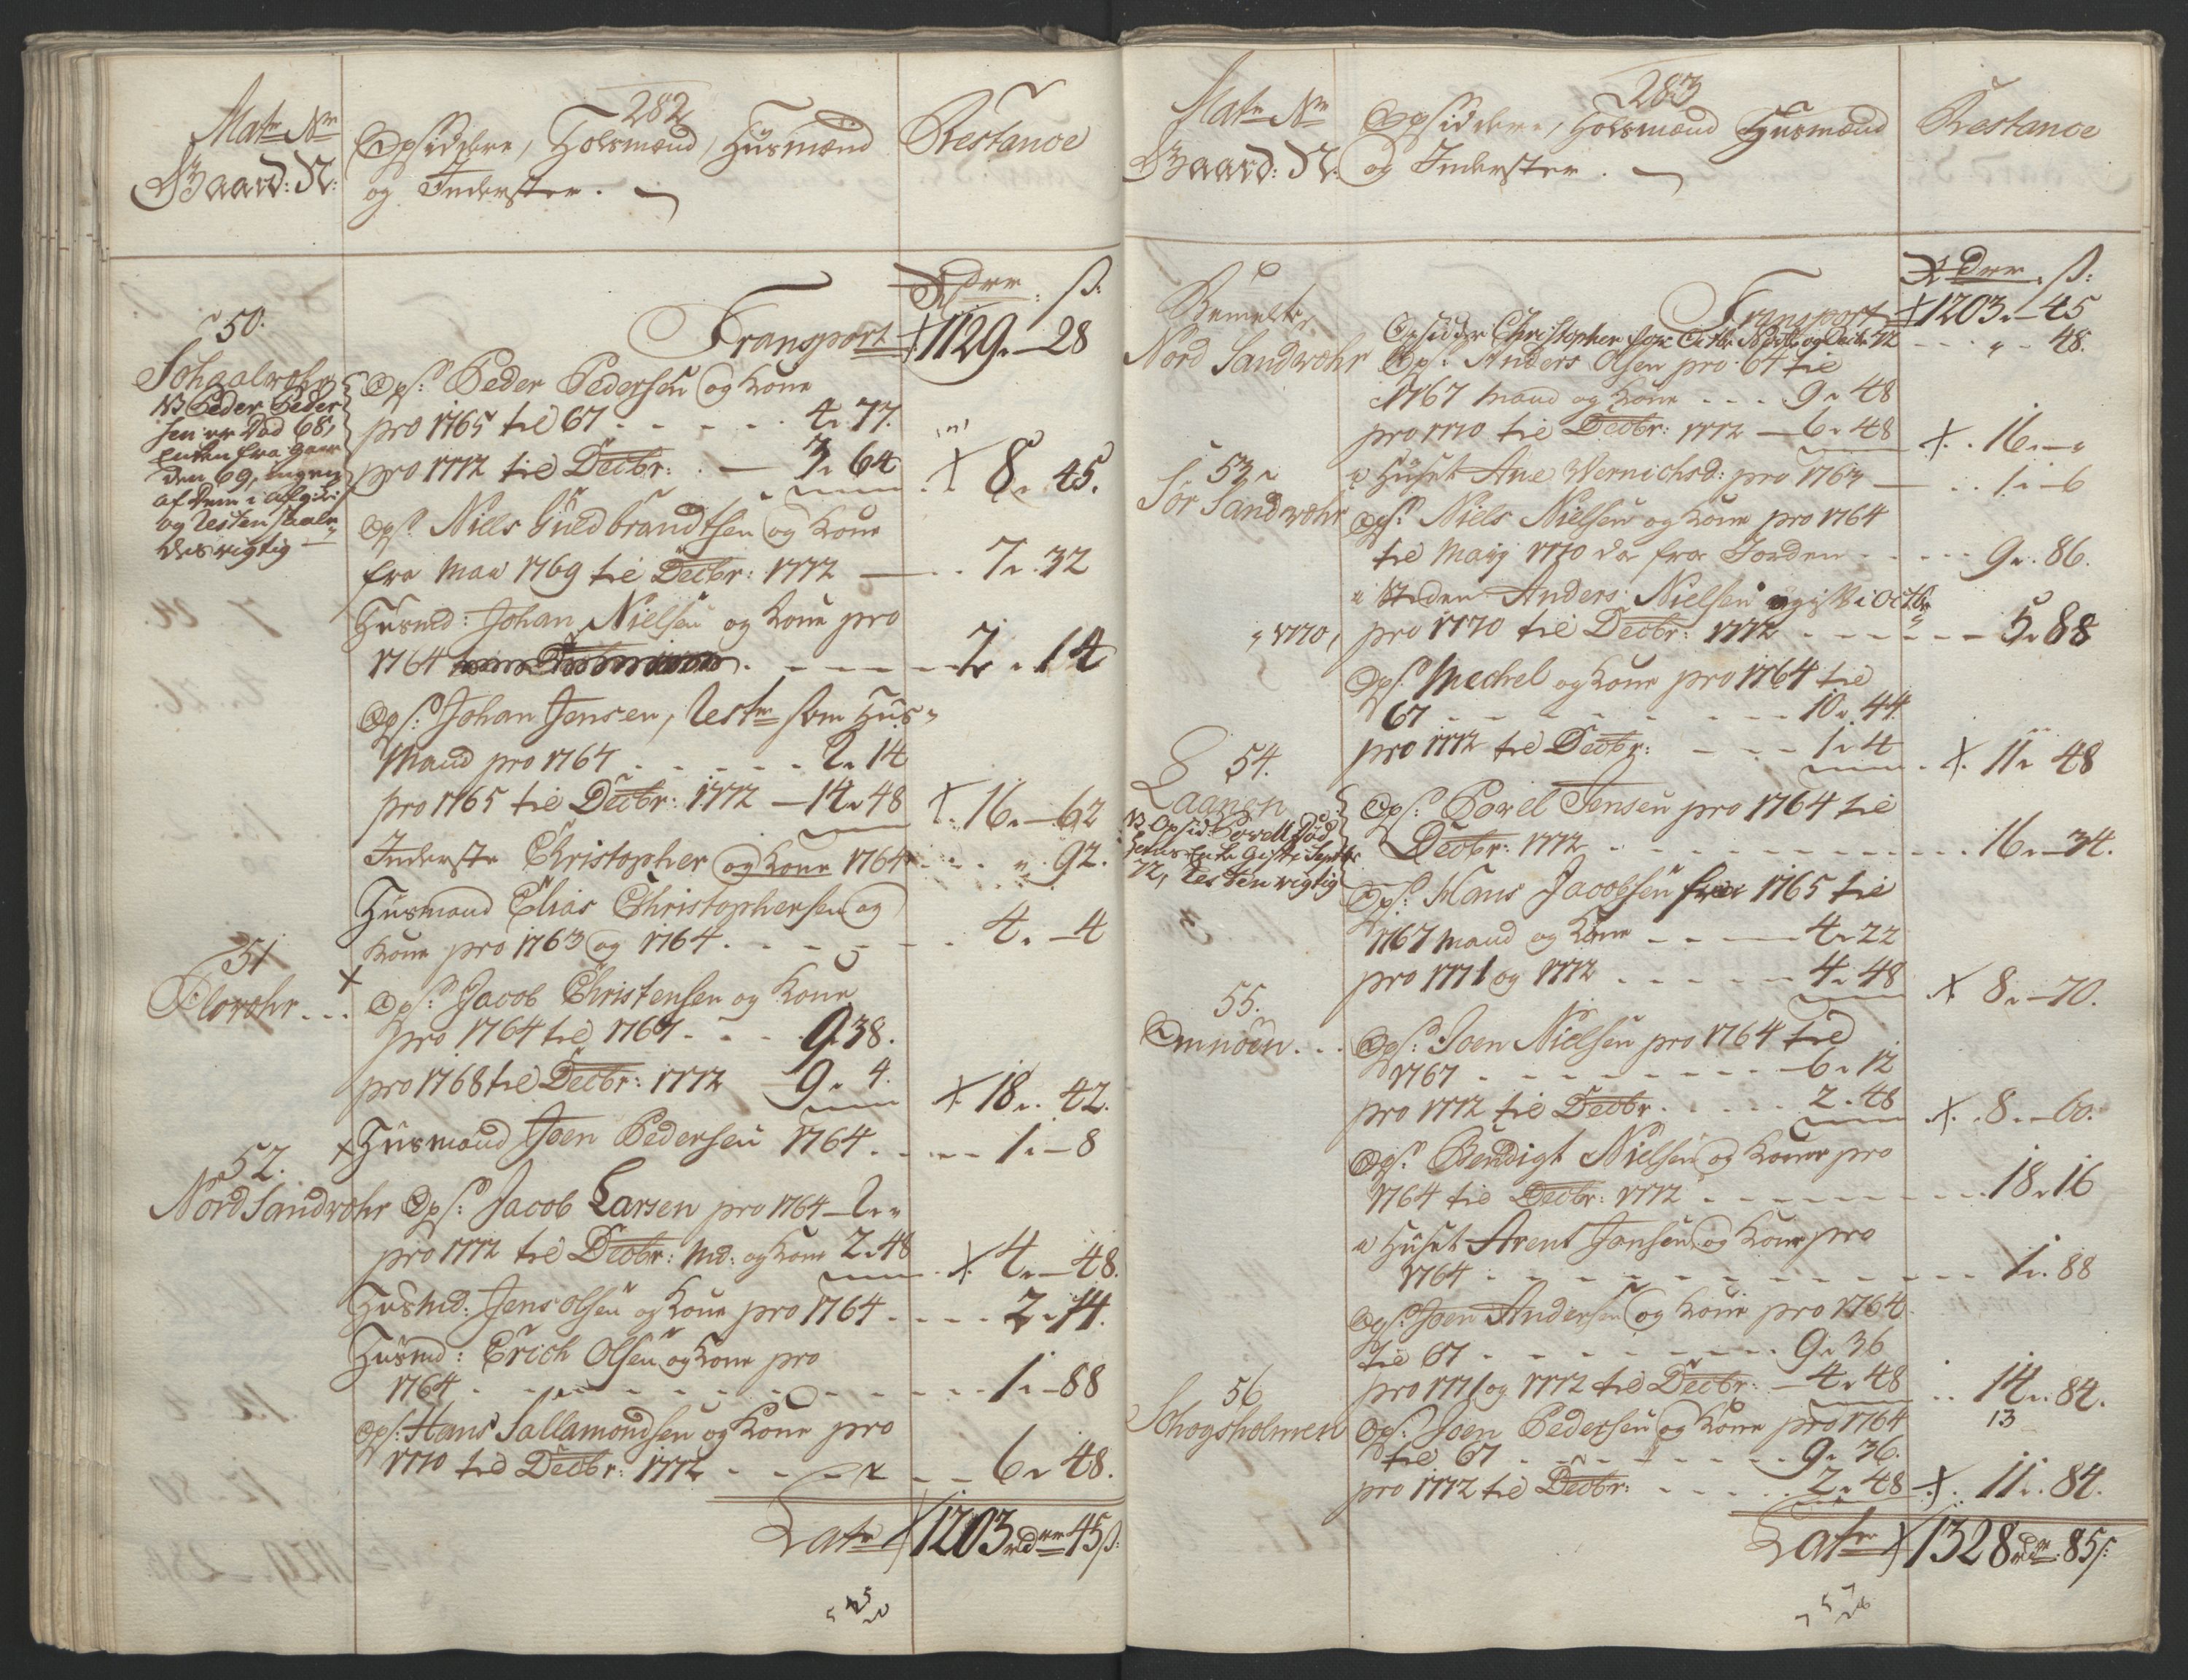 282
Matr Nr
Gaard: N:
Opsiddere, Holsmænd, Husmænd
og Inderster.
Restance
Rdrr: ß:
Transport 1129.-28
50.
NB Peder Peder
sen er Død 68,
Enken fra gaar
den 69, ingen
af Dem i
og Resten
des rigtig
Ops: Peder Pedersen og Kone
pro 1765 til 67 - - - - 4. 77.
pro 1772 til Decbr: - 3. 64 8. 45.
Ops: Niels Guldbrandtsen og Kone
fra Maii 1769 til Decbr: 1772 - 7. 32
Husmd: Johan Nielsen og Kone pro
1764 - - - - 2. 14
Ops: Johan Jensen, Restr som Hus-
Mand pro 1764 - - - - 2. 14
pro 1765 til Decbr: 1772 - 14. 48 16.-62
Inderste Christopher og Kone 1764 - - „. 92.
Husmand Elias Christophersen og
Kone pro 1763 og 1764 - - - - 4.-4
51
Ops: Jacob Christensen og Kone
pro 1764 til 1767 - - - 9.38.
pro 1768 til Decbr: 1772 9. 4. 18. 42.
Husmand Joen Pedersen 1764 - - - 1.-8
52.
Nord Sandvæhr Ops: Jacob Larsen pro 1764 - 2. „
pro 1772 til Decbr: Md: og Kone 2. 48 4.-48.
Husmd: Jens Olsen og Kone pro 1764 - - - 2. 14.
Husmd: Erich Olsen og Kone pro
1764 - - - - - - 1.-88
Ops: Hans Sallamondsen og Kone pro
1770 til Decbr: 1772 - - - - 6. 48.
Latr 1203 rdrr 45 ß:
283
Matr Nr
Gaard: N:
Opsiddere, Holsmænd Husmænd
og Inderster.
Restance
Rdrr. ß:
Transport 1203.-45
Nord Sandvæhr
Opsidder Christopher for Octbr Novbr og Decbr 72 - - „ - 48.
Ops: Anders Olsen pro 64 til
1767 Mand og Kone - - - 9. 48
pro 1770 til Decbr: 1772 - 6. 48 16.-„
53.
Sør Sandvæhr
i Huset Ane Wernichsd: pro 1764 - - 1.-6
Ops: Niels Nielsen og Kone pro 1764
til Maij 1770 da fra Jorden - - - 9. 86.
i Steden Anders Nielsen i Octbr
„ 1770, pro 1770 til Decbr: 1772 - - - - 5. 88
Ops: Mechel og Kone pro 1764 til
67 - - - - - 10. 44.
pro 1772 til Decbr: - - - 1. 4 11. 48
54.
Laanen
NB Opsid: Povell Død
hans Enke Gift i Septbr
72, Resten rigtig
Ops: Povel Jensen pro 1764 til
Decbr: 1772 - - - - - 16.-34.
Ops: Hans Jacobsen fra 1765 til
1767 Mand og Kone - - - 4. 22
pro 1771 og 1772 - - - - 4. 48 8.-70.
55.
Ops: Joen Nielsen pro 1764 til
1767 - - - - - 6. 12
pro 1772 til Decbr - - - 2. 48 8.-60.
Ops: Bendigt Nielsen og Kone pro
1764 til Decbr: 1772 - - - - 18. 16
i Huset Arent Jansen og Kone pro
1764 - - - - - 1. 88
Ops: Joen Andersen og Kone pro 1764
til 67 - - - - - 9. 36
pro 1771 og 1772 til Decbr: - 4. 48 14. 84.
13
56
Schogsholmen
Ops: Joen Pedersen og Kone pro 1764
til 67 - - - - - 9. 36.
pro 1772 til Decbr: - - - 2. 48 11. 84.
Latr 1328 rdr. 85 ß: